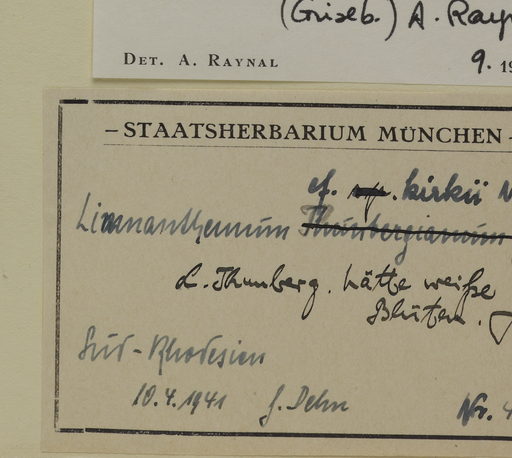 (Griseb.) A. Rayn
DET. A. RAYNAL 9. 19
– STAATSHERBARIUM MÜNCHEN –
cf. kirkii N
Limnanthemum Thunbergianum
L. Thunberg. hätte weiße
Blüten.
Süd-Rhodesien
10.4.1941 G. Dehn Nr. 4